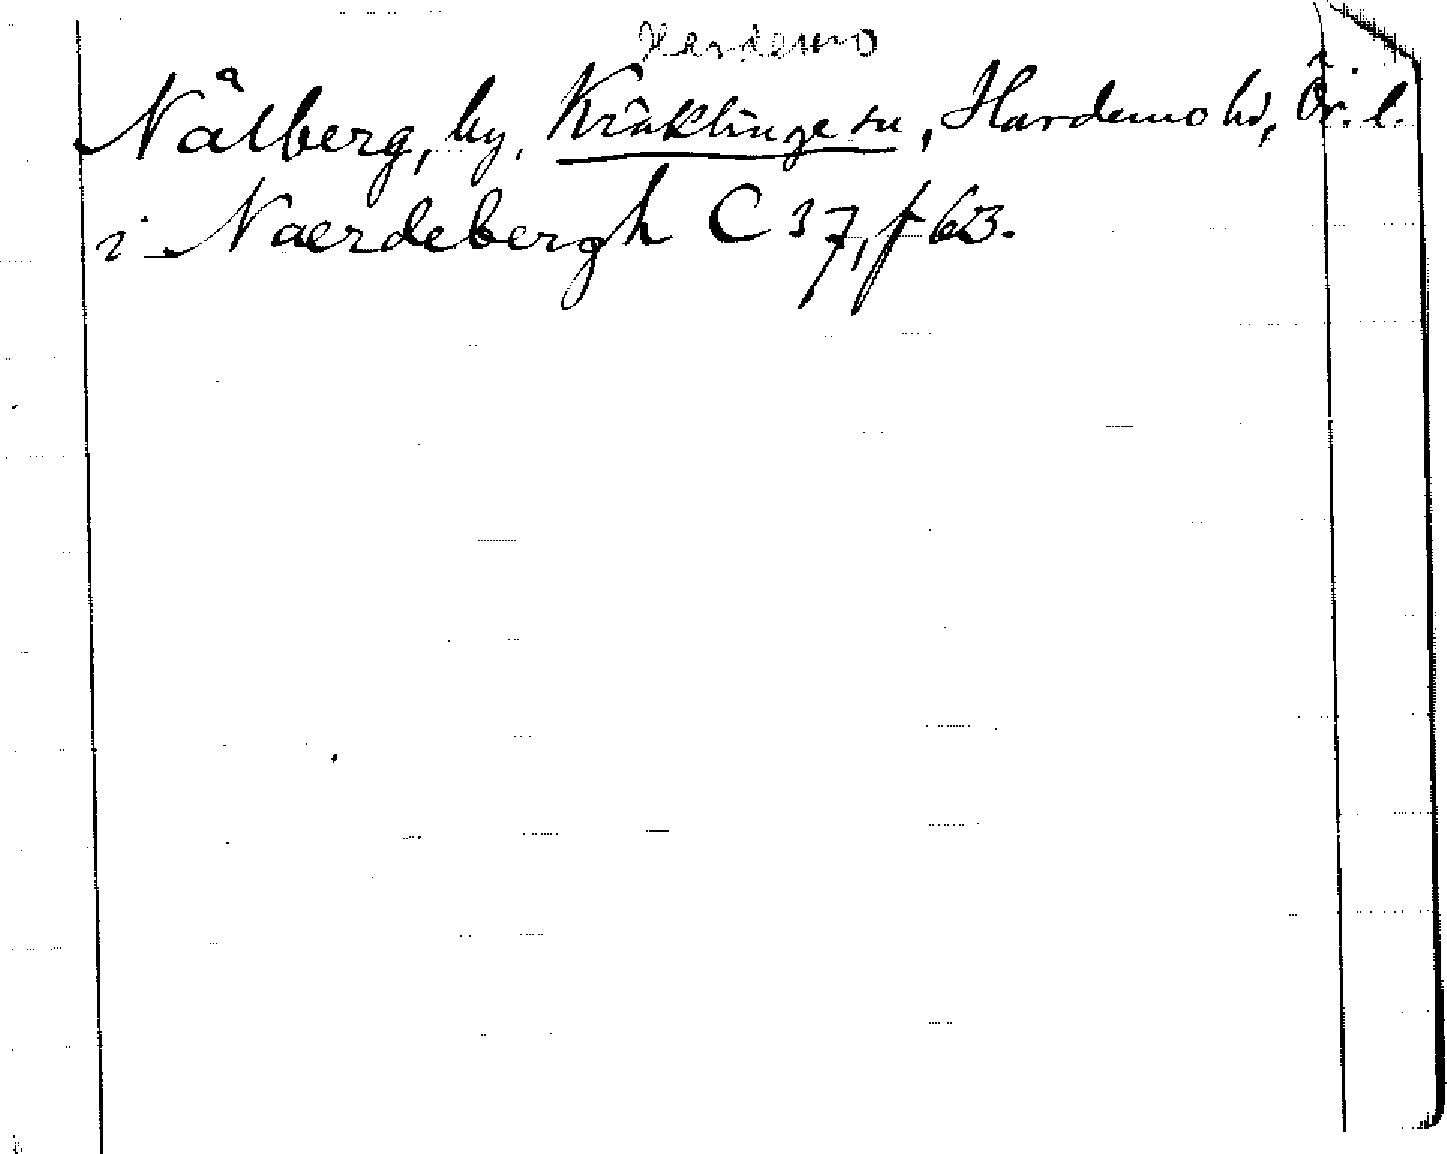 Hardemo
Nålberg, by, Kräklinge sn, Hardemo hd, Ör. l.
i Naerdebergh C 37, f 63.